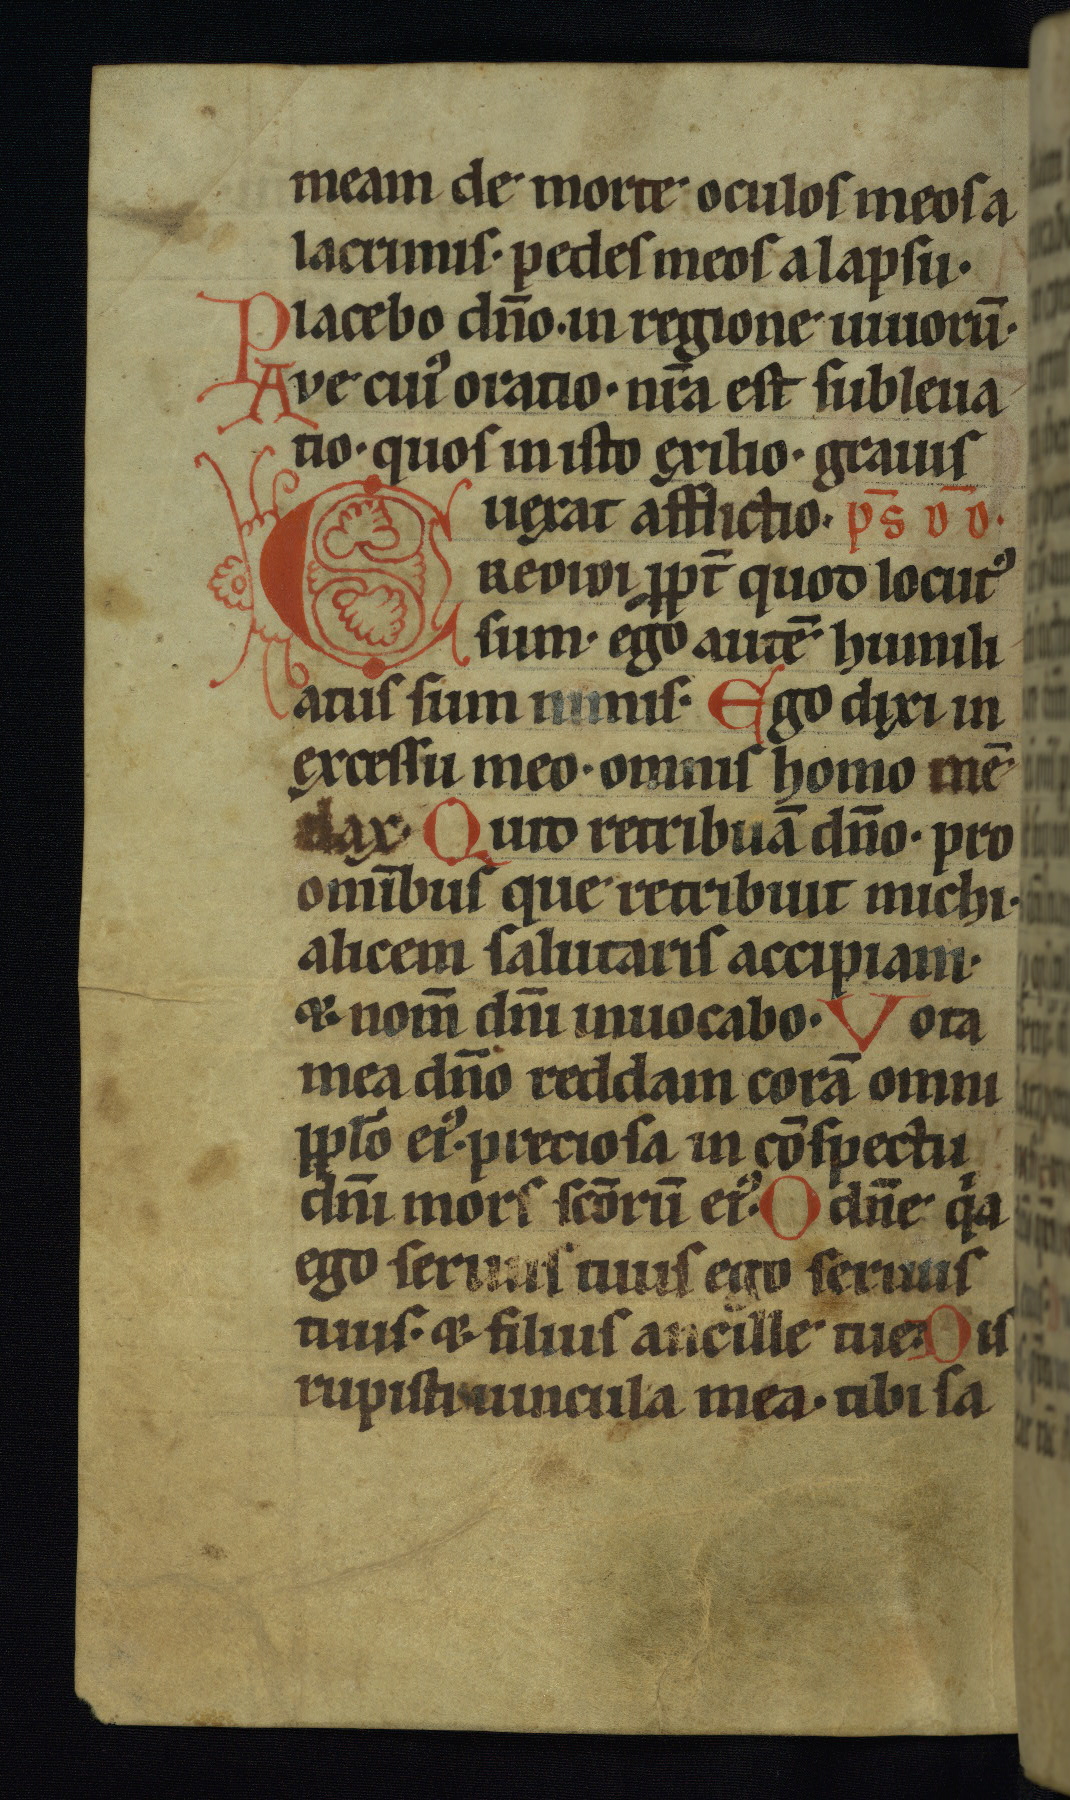 meam de morte oculos meos a
lacrimis· pedes meos a lapsu·
Placebo dn̄o·in regione uiuorū·
Ave cuiꝰ oratio· nr̄a est subleua
tio· quos in isto exilio· grauis
uexat afflictio· ps̄ v̄ v̄·
CREDIDI ꝓpt̄ quod locutꝰ
sum· ego autē humili
atus sum nimis· Ego dixi in
excessu meo· omnis homo mē
dax· Quid retribuā dn̄o· pro
omībus que retribuit michi·
alicem salutaris accipiam·
& nom̄ dn̄i inuocabo· Vota
mea dn̄o reddam corā omni
ppl̄o eiꝰ·preciosa in cōspectu
dn̄i mors scōrū eiꝰ· O dn̄e qⁱa
ego seruus tuus ego seruus
tuus· & filius ancille tue· Dis
rupisti uincula mea· tibi sa